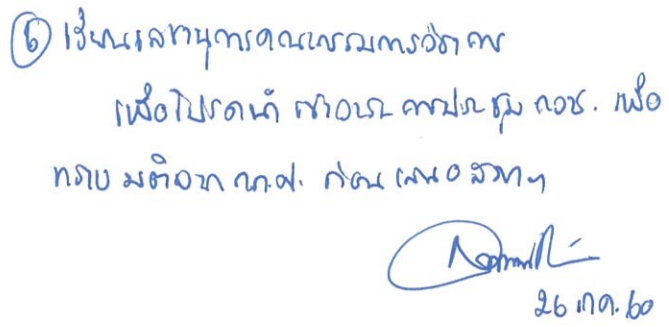 ๖ เรียนเลขานุการคณะกรรมการวิชาการ
เพื่อโปรดนำเข้าวาระการประชุม กวช. เพื่อ
ทราบ มติจาก ก.ศ. ก่อนเสนอสภาฯ
26 กค. 60